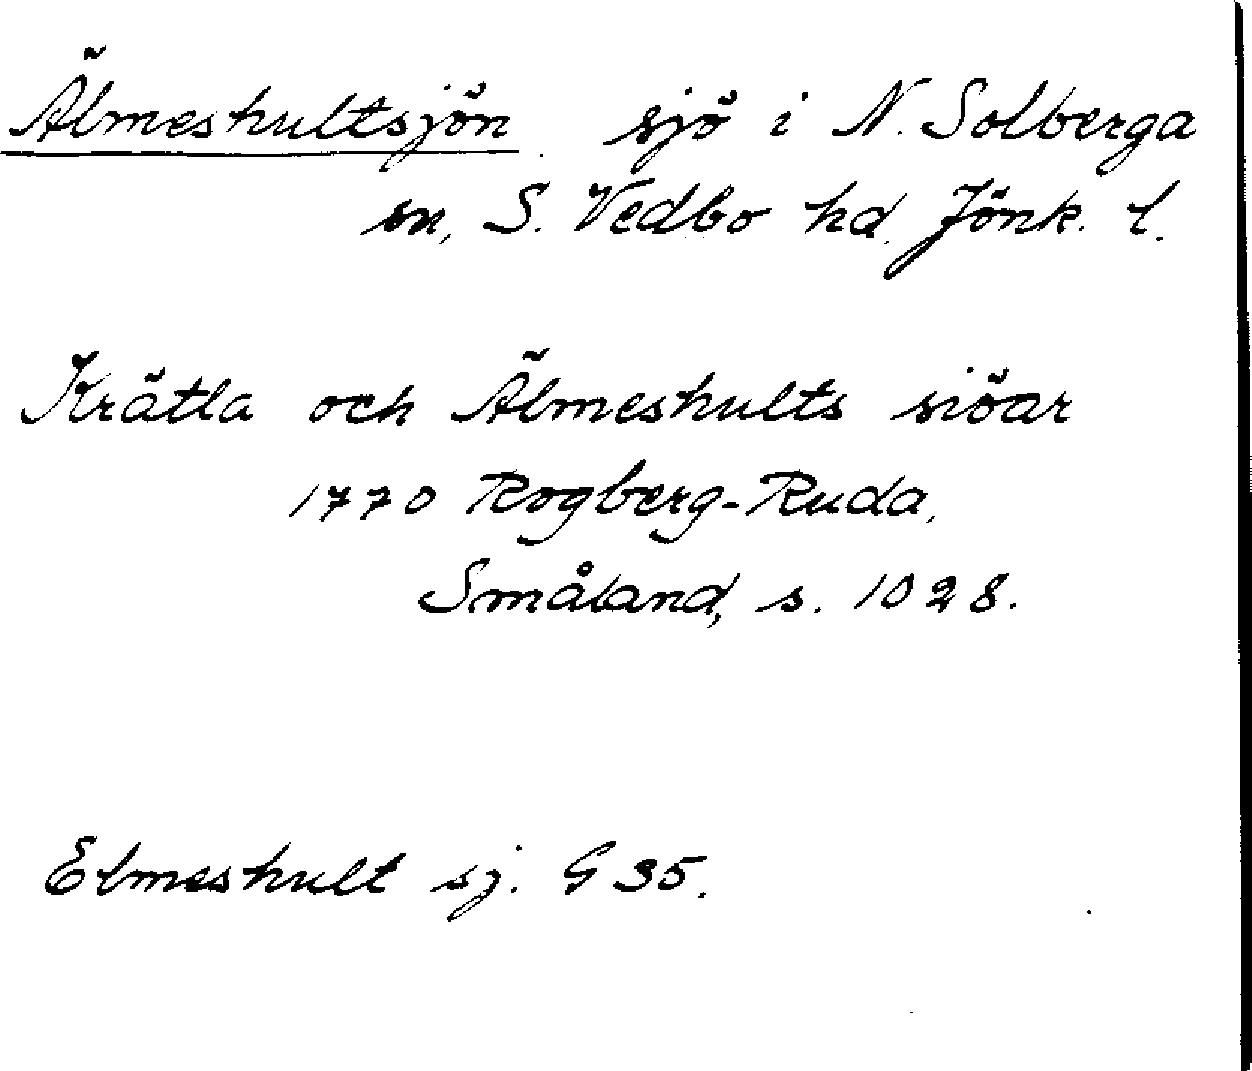 Älmeshultsjön. sjö i N. Solberga
sn, S. Vedbo hd. Jönk. l.
Krätla och Älmeshults siöar
1770 Rogberg-Ruda,
Småland, s. 1028.
Elmeshult sj. G 35.